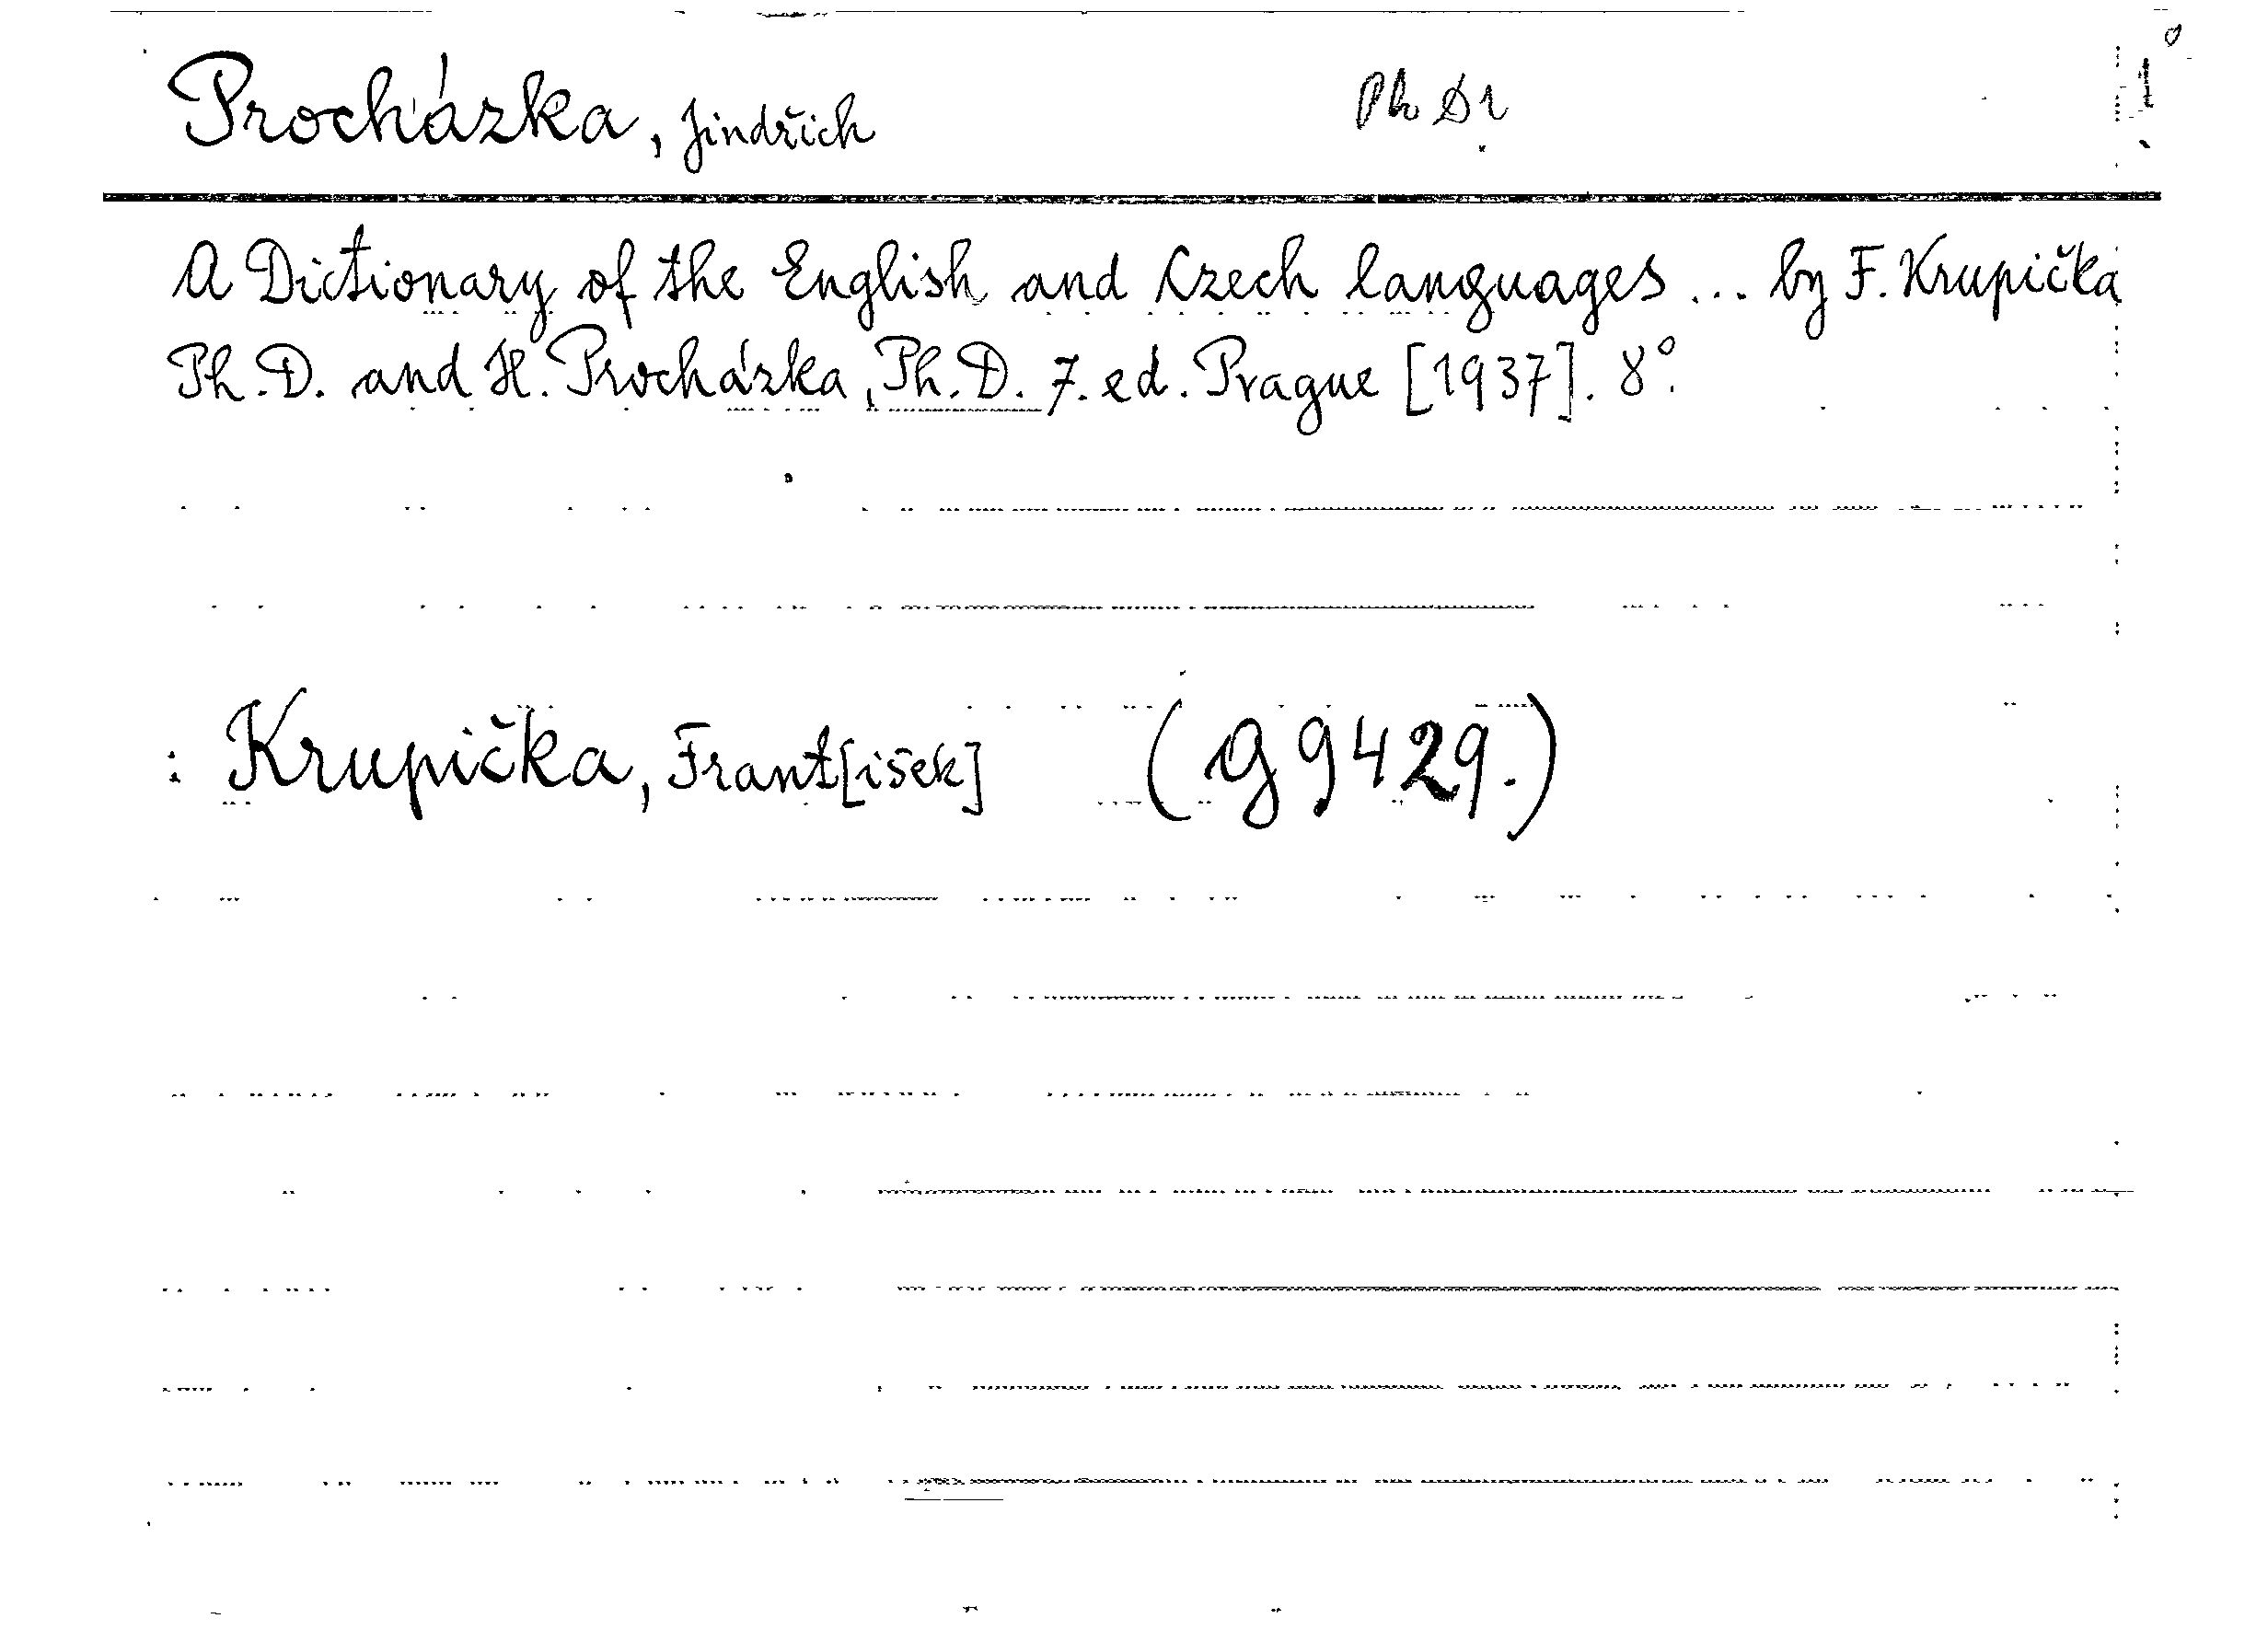 Procházka, Jindřich PhDr 1
A Dictionary of the English and Czech languages ... by F. Krupička
Ph.D. and H. Procházka, Ph.D. 7. ed. Prague [1937]. 8°.
: Krupička, Frant[išek] (g 9429.)